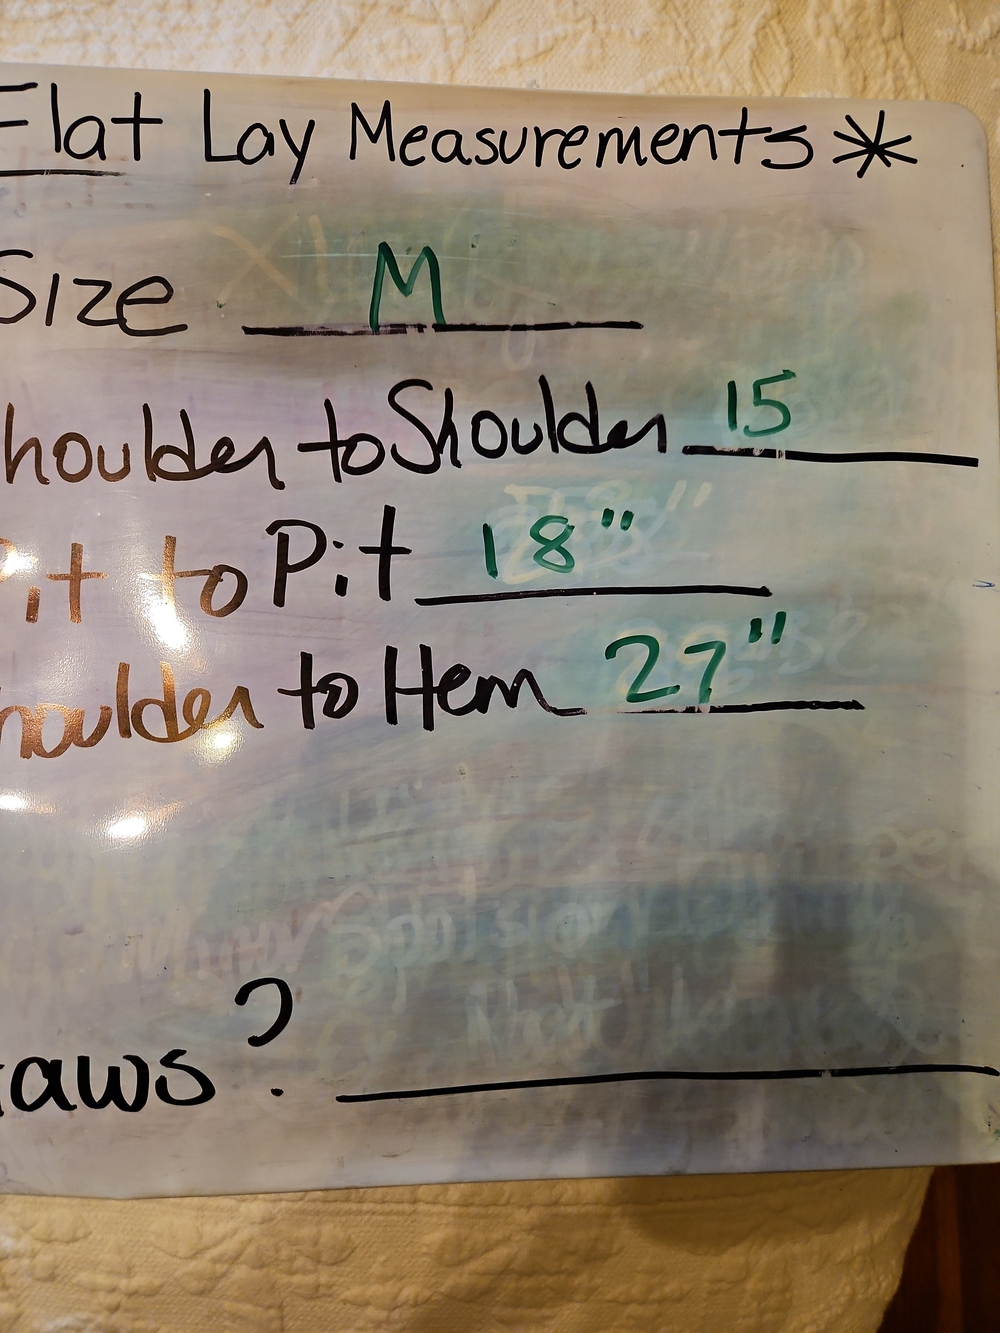 Flat Lay Measurements *
Size M
houlder to Shoulder 15
Pit to Pit 18"
houlder to Hem 27"
laws?